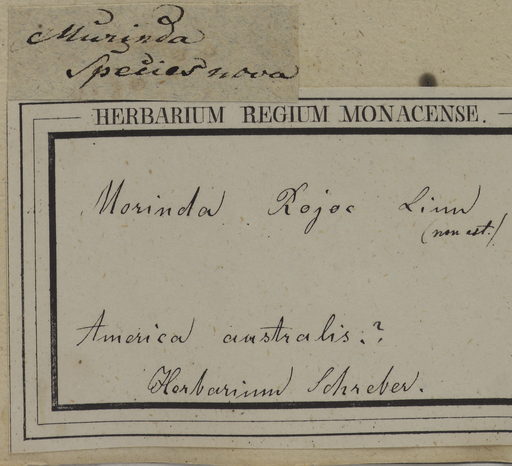 Murinda
Species nova
HERBARIUM REGIUM MONACENSE.
Morinda Rojoc Linn
(non est.)
America australis.?
Herbarium Schreber.